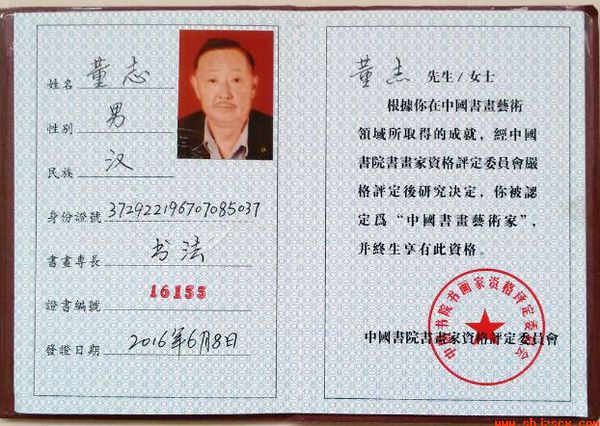 姓名 董志
性别 男
民族 汉
身份證號 372922196707085037
書畫專長 书法
證書編號 16155
發證日期 2016年6月8日
董志 先生/女士
根據你在中國書畫藝術
領域所取得的成就，經中國
書院書畫家資格評定委員會嚴
格評定後研究決定，你被認
定爲“中國書畫藝術家”，
并終生享有此資格。
中國書院書畫家資格評定委員會
中国书院书画家资格评定委员会
www.shjzscx.com